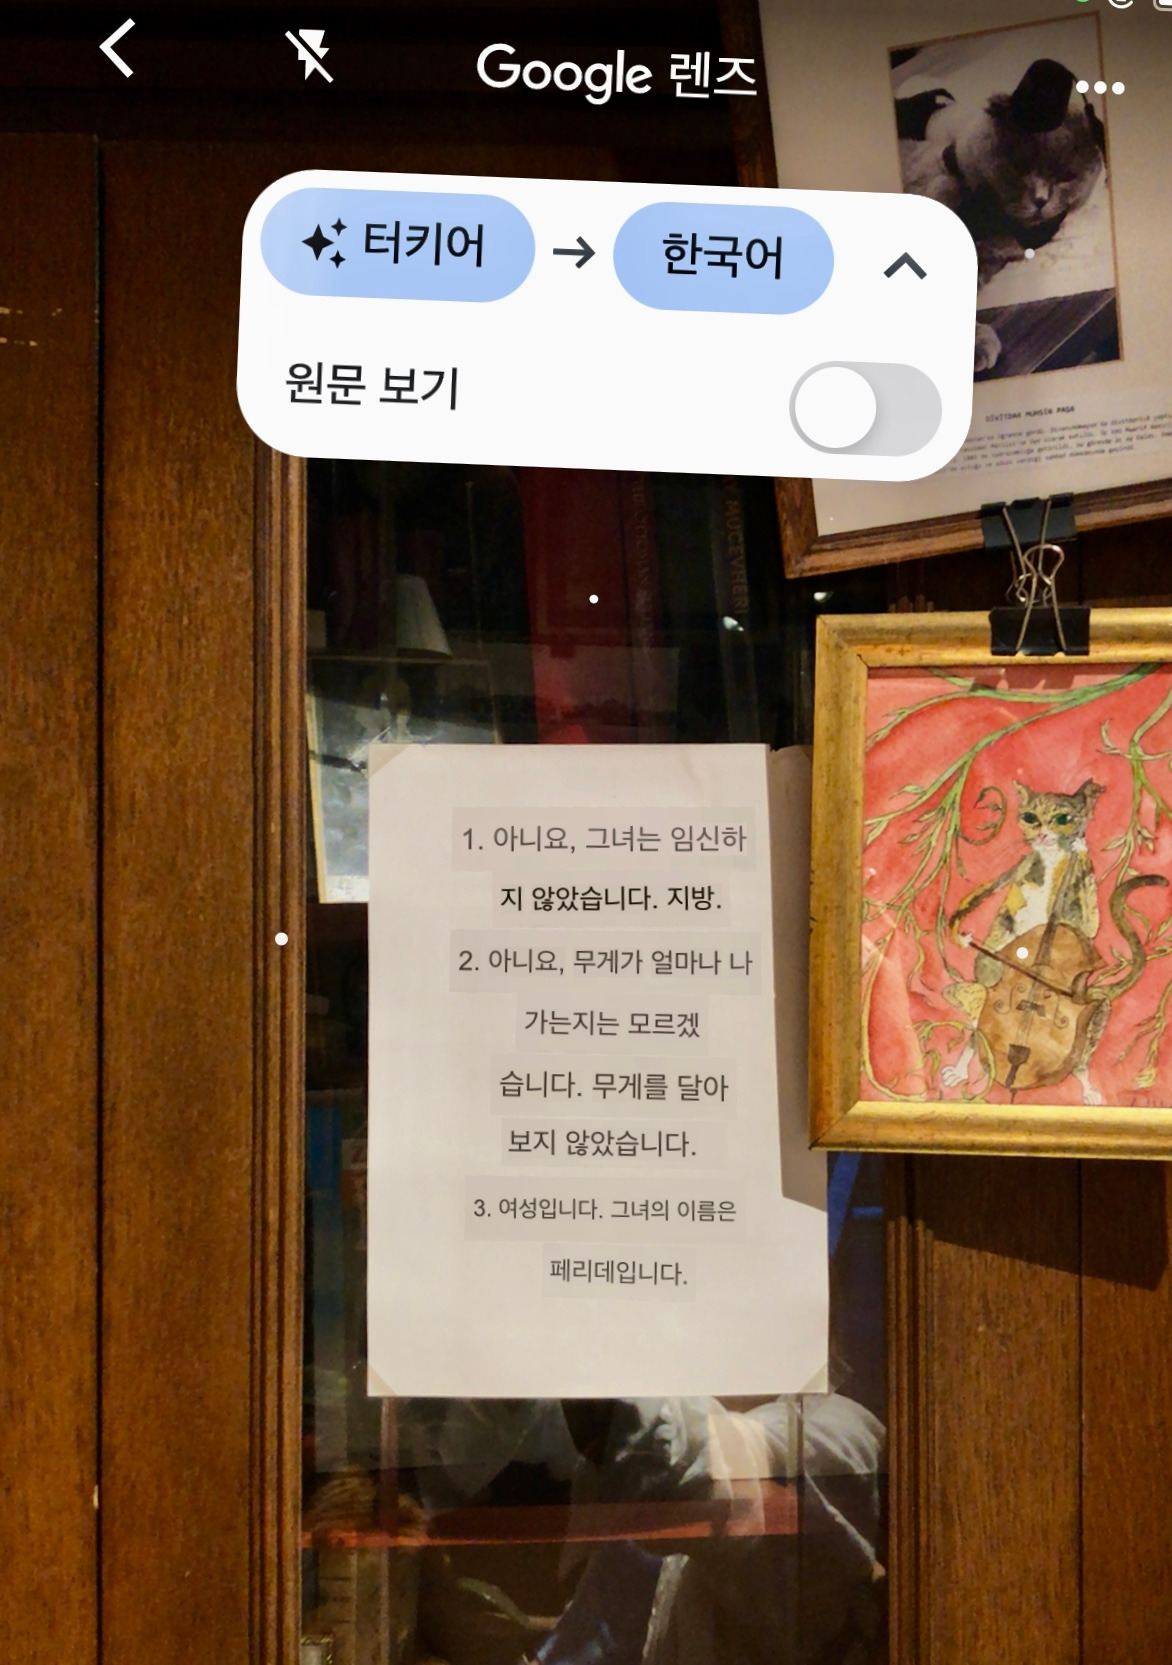 Google 렌즈
터키어 → 한국어
원문 보기
DİVİTDAR MUHSİN PAŞA
MÜCEVHERİ
1. 아니요, 그녀는 임신하
지 않았습니다. 지방.
2. 아니요, 무게가 얼마나 나
가는지는 모르겠
습니다. 무게를 달아
보지 않았습니다.
3. 여성입니다. 그녀의 이름은
페리데입니다.